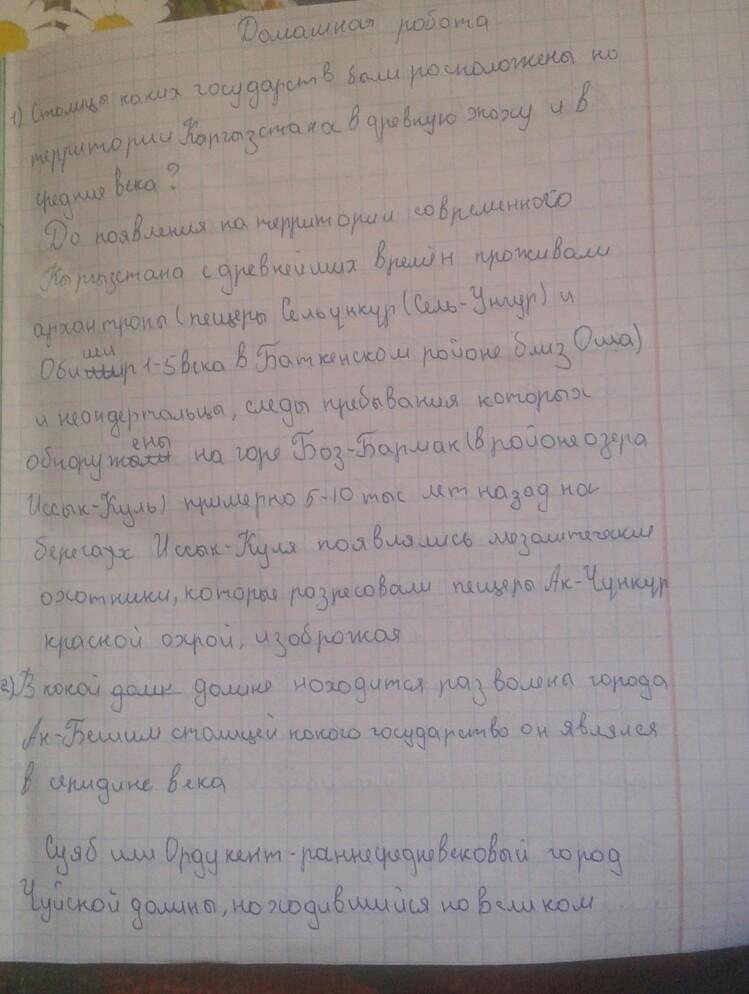 Домашная робота
1) Столицы каких государств бали росположены но
территории Каргызстана в древную эпоху и в
средние века?
До появления на территории современного
Кыргызстана с древнейших времён проживали
архантропы (пещеры Сельункур (Сель-Унгур) и
Обишир 1-5 века в Баткенском районе близ Оша)
и неондертальцы, следы пребывания которых
обноружены на горе Боз-Бармак (в районе озера
Иссык-Куль) примерно 5-10 тыс лет назад на
берегаух Иссык-Куля появлялись мезолитические
охотники, которые розресовали пещеры Ак-Чункур
красной охрой, изоброжая
2) В какой долк долине ноходится развалена города
Ак-Бешим столицей кокого государство он являлся
в сридине века
Суяб или Ордукент-раннесредневековый город
Чуйской долины, ноходившийся но Великом